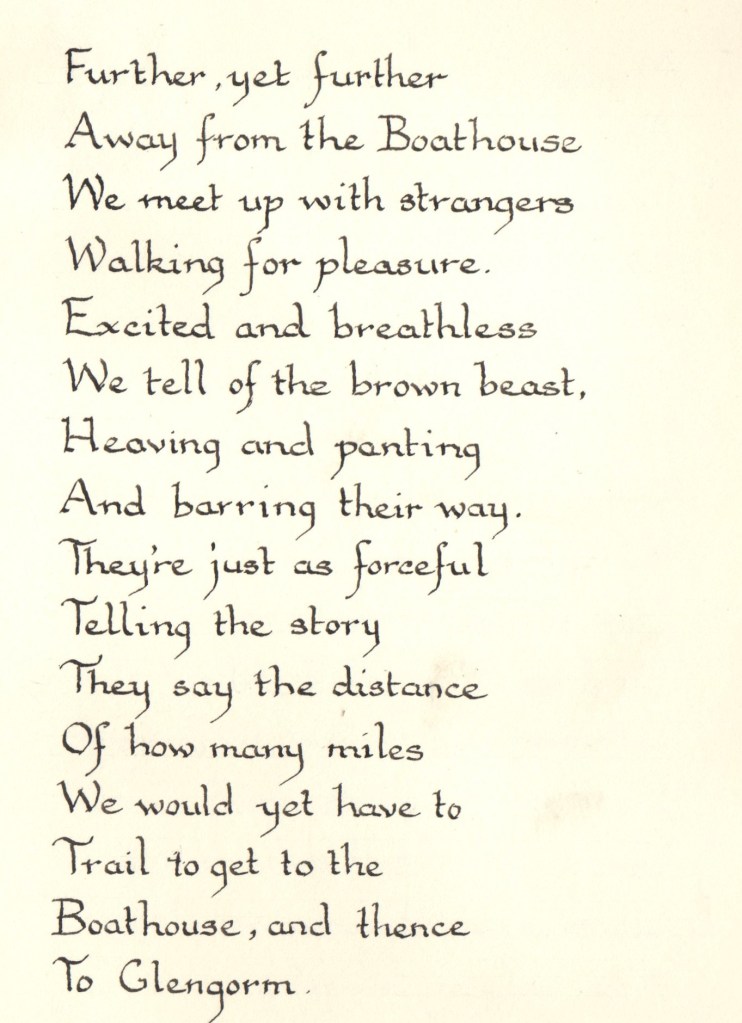 Further, yet further
Away from the Boathouse
We meet up with strangers
Walking for pleasure.
Excited and breathless
We tell of the brown beast,
Heaving and panting
And barring their way.
They're just as forceful
Telling the story
They say the distance
Of how many miles
We would yet have to
Trail to get to the
Boathouse, and thence
To Glengorm.